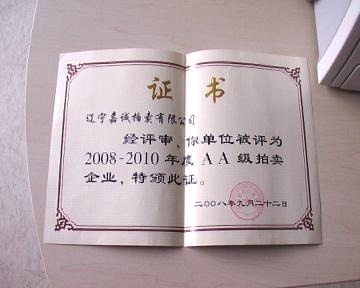 证 书
辽宁嘉诚拍卖有限公司
经评审，你单位被评为
2008-2010年度AA级拍卖
企业，特颁此证。
二〇〇八年九月二十二日